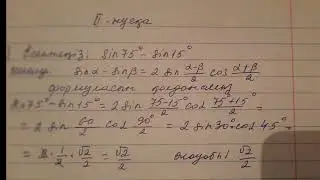 II - нұсқа
Есептеңіз: sin75° - sin15°
sinα - sinβ = 2 sin (α-β)/2 cos (α+β)/2
формуласын қолданамыз
sin75° - sin15° = 2 sin (75-15°)/2 cos (75°+15°)/2 =
= 2 sin 60/2 cos 90°/2 = 2 sin30° · cos45° =
= 2 · 1/2 · √2/2 = √2/2 √2/2